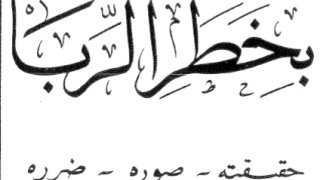 بخطر الربا
حقيقته - صوره - ضرره